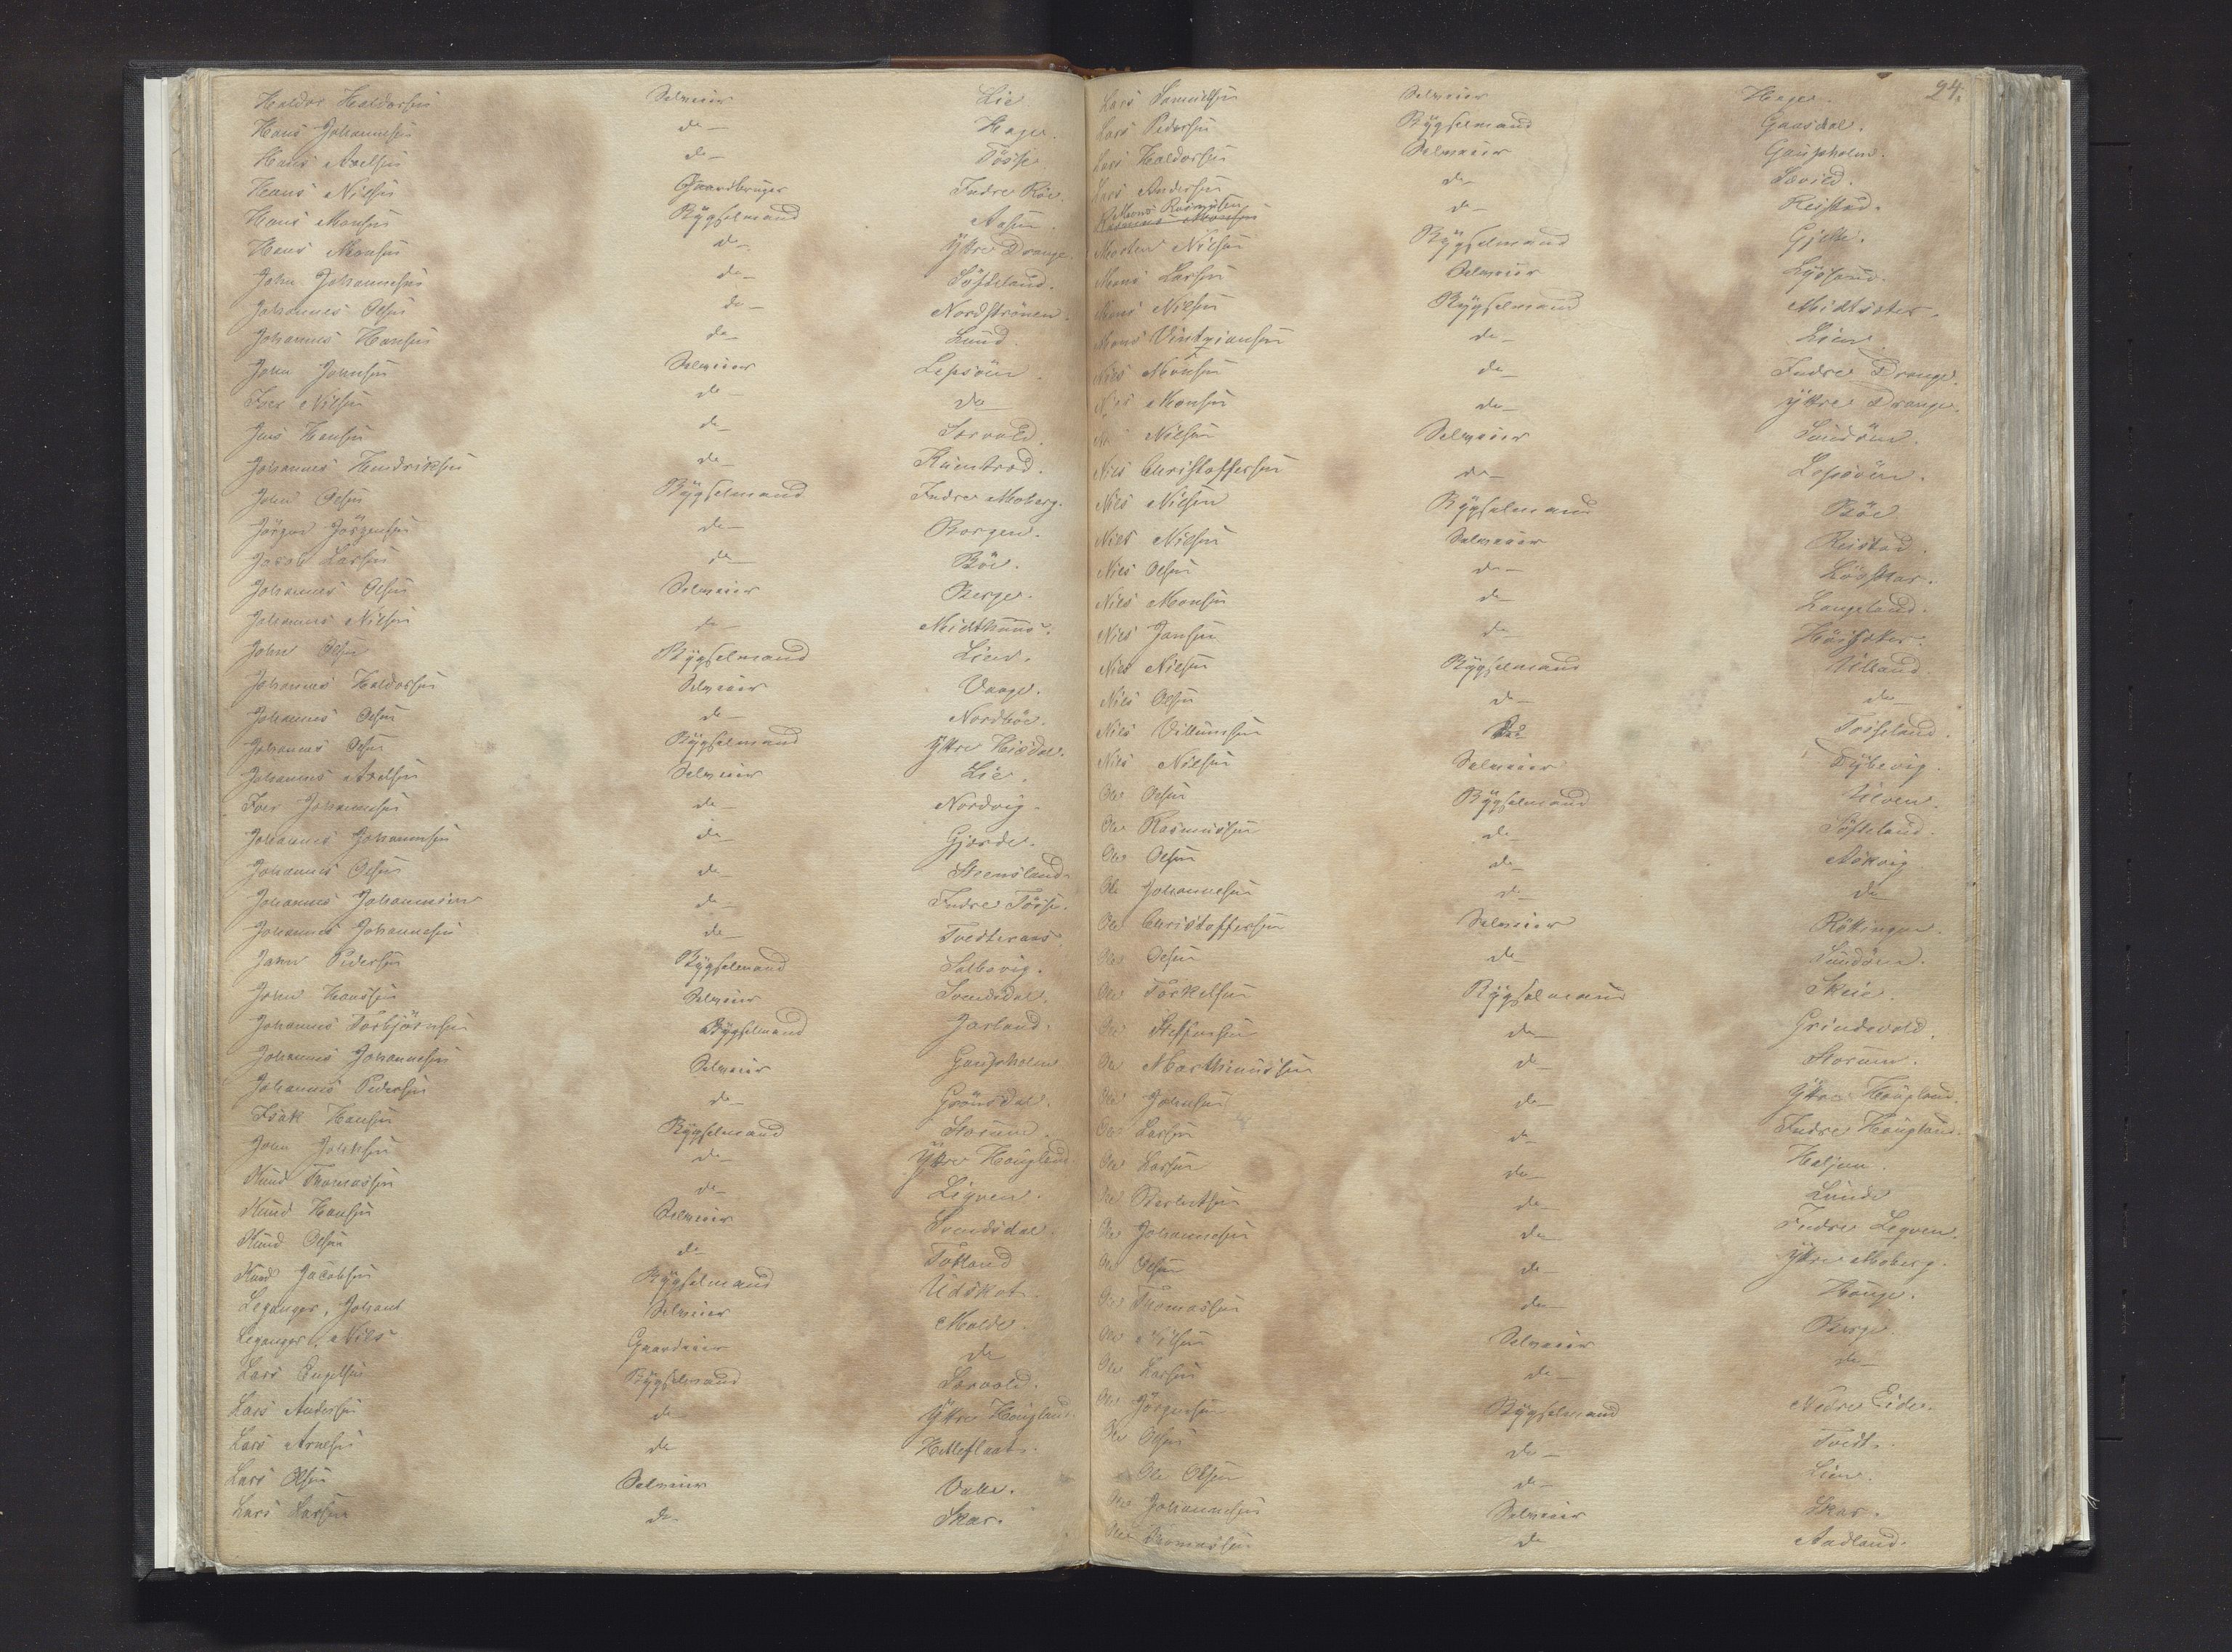 Haldor Haldorsen Selveier Lie
Hans Johannesen do— Hage.
Hans Axelsen do— Tösse
Hans Nilsen Gaardbruger Indre Röe.
Hans Monsen Bygselmand Aasen.
Hans Monsen do— Ÿttre Drange.
John Johannesen do— Söfteland.
Johannes Olsen do— Nordströnen.
Johannes Hansen do— Lund.
John Johnsen Selveier Lepsöen.
Iver Nilsen do do
Jens Hansen do— Sørvold.
Johannes Hendriksen do—
John Olsen Bygselmand Indre Moberg.
Jörgen Jörgensen do— Borgen.
Jacob Larsen do— Böe.
Johannes Olsen Selveier Berge.
Johannes Nilsen do— Midthuus.
John Olsen Bygselmand Lien.
Johannes Haldorsen Selveier Vaage.
Johannes Olsen do— Nordböe.
Johannes Olsen Bygselmand Ÿttre Hisdal.
Johannes Axelsen Selveier Lie.
Iver Johannesen do— Nordvig.
Johannes Johannesen do— Gjerde.
Johannes Olsen do— Steensland.
Johannes Johannesen do— Indre Tösse.
Johannes Johannesen do— Tvedteraas.
John Pedersen Bygselmand Salbovig.
John Hanssen Selveier Svendsdal.
Johannes Torbjörnsen Bygselmand Jarland.
Johannes Johannesen Selveier Gaupholm
Johannes Pedersen do— Grönsdal.
Isak Hansen Bygselmand Storum.
John do— Ÿttre Hougland
Knud Thomassen do— Ligven.
Knud Hansen Selveier Svendsdal.
Knud Olsen do— Tofland
Knud Jacobsen Bygselmand Udskot.
Leganger, Johan Selveier Malde.
Leganger, Nils Gaardeier do
Lars Engelsen Bygselmand Sørvold.
Lars Andersen do Ÿttre Hougland.
Lars Arnesen do Hetleflaat.
Lars Olsen Selveier Valle.
Lars Larsen do— Skar.
24.
Lars Samuelsen Selveier Hage.
Lars Pedersen Bygselmand Gaasdal.
Lars Haldorsen Selveier Gaupholm.
Lars Andersen do—
Mons Rasmussen do— Reistad.
Rasmus Monsen
Morten Nilsen Bygselmand Gjette.
Mons Larsen Selveier Lysand.
Mons Nilsen Bygselmand Midtsæter.
Mons do— Lien
Nils Monsen do— Indre Drange.
Nils Monsen do— Ÿttre Drange.
Nilsen Selveier Sundöen.
Nils Christoffersen do— Lepsöen.
Nils Nilsen Bygselmand Böe
Nils Nilsen Selveier Reistad.
Nils Olsen do—
Nils Monsen do— Langeland.
Nils Jansen do— Höisæter.
Nils Nilsen Bygselmand Ulland.
Nils Olsen do— do—
Nils Villumsen do Tosseland.
Nils Nilsen Selveier Dybevig.
Ole Olsen Bygselmand Ulven.
Ole Rasmussen do— Söfteland.
Ole Olsen do— Askvig
Ole Johannesen do— do
Ole Christoffersen Selveier Röttingen.
Ole Olsen do— Sundöen.
Ole Torkelsen Bygselmand Skeie.
Ole Steffensen do— Grindevold.
Ole Marthinussen do— Storum.
Ole Johnsen do— Ÿttre Hougland.
Ole Larsen do— Indre Hougland.
Ole Larsen do— Haljem.
Ole do— Lunde
Ole Johannesen do— Indre Legven.
Ole Olsen do— Ÿttre Moberg.
Ole Thomassen do— Hauge.
Ole Nilsen Selveier Berge
Ole Larsen do— do—
Ole Jörgensen Bygselmand Nedre Eide.
Ole Olsen do— Tvedt.
Ole Olsen do— Lien.
Ole Johannesen Selveier Skar.
Ole Thomassen do Aadland.